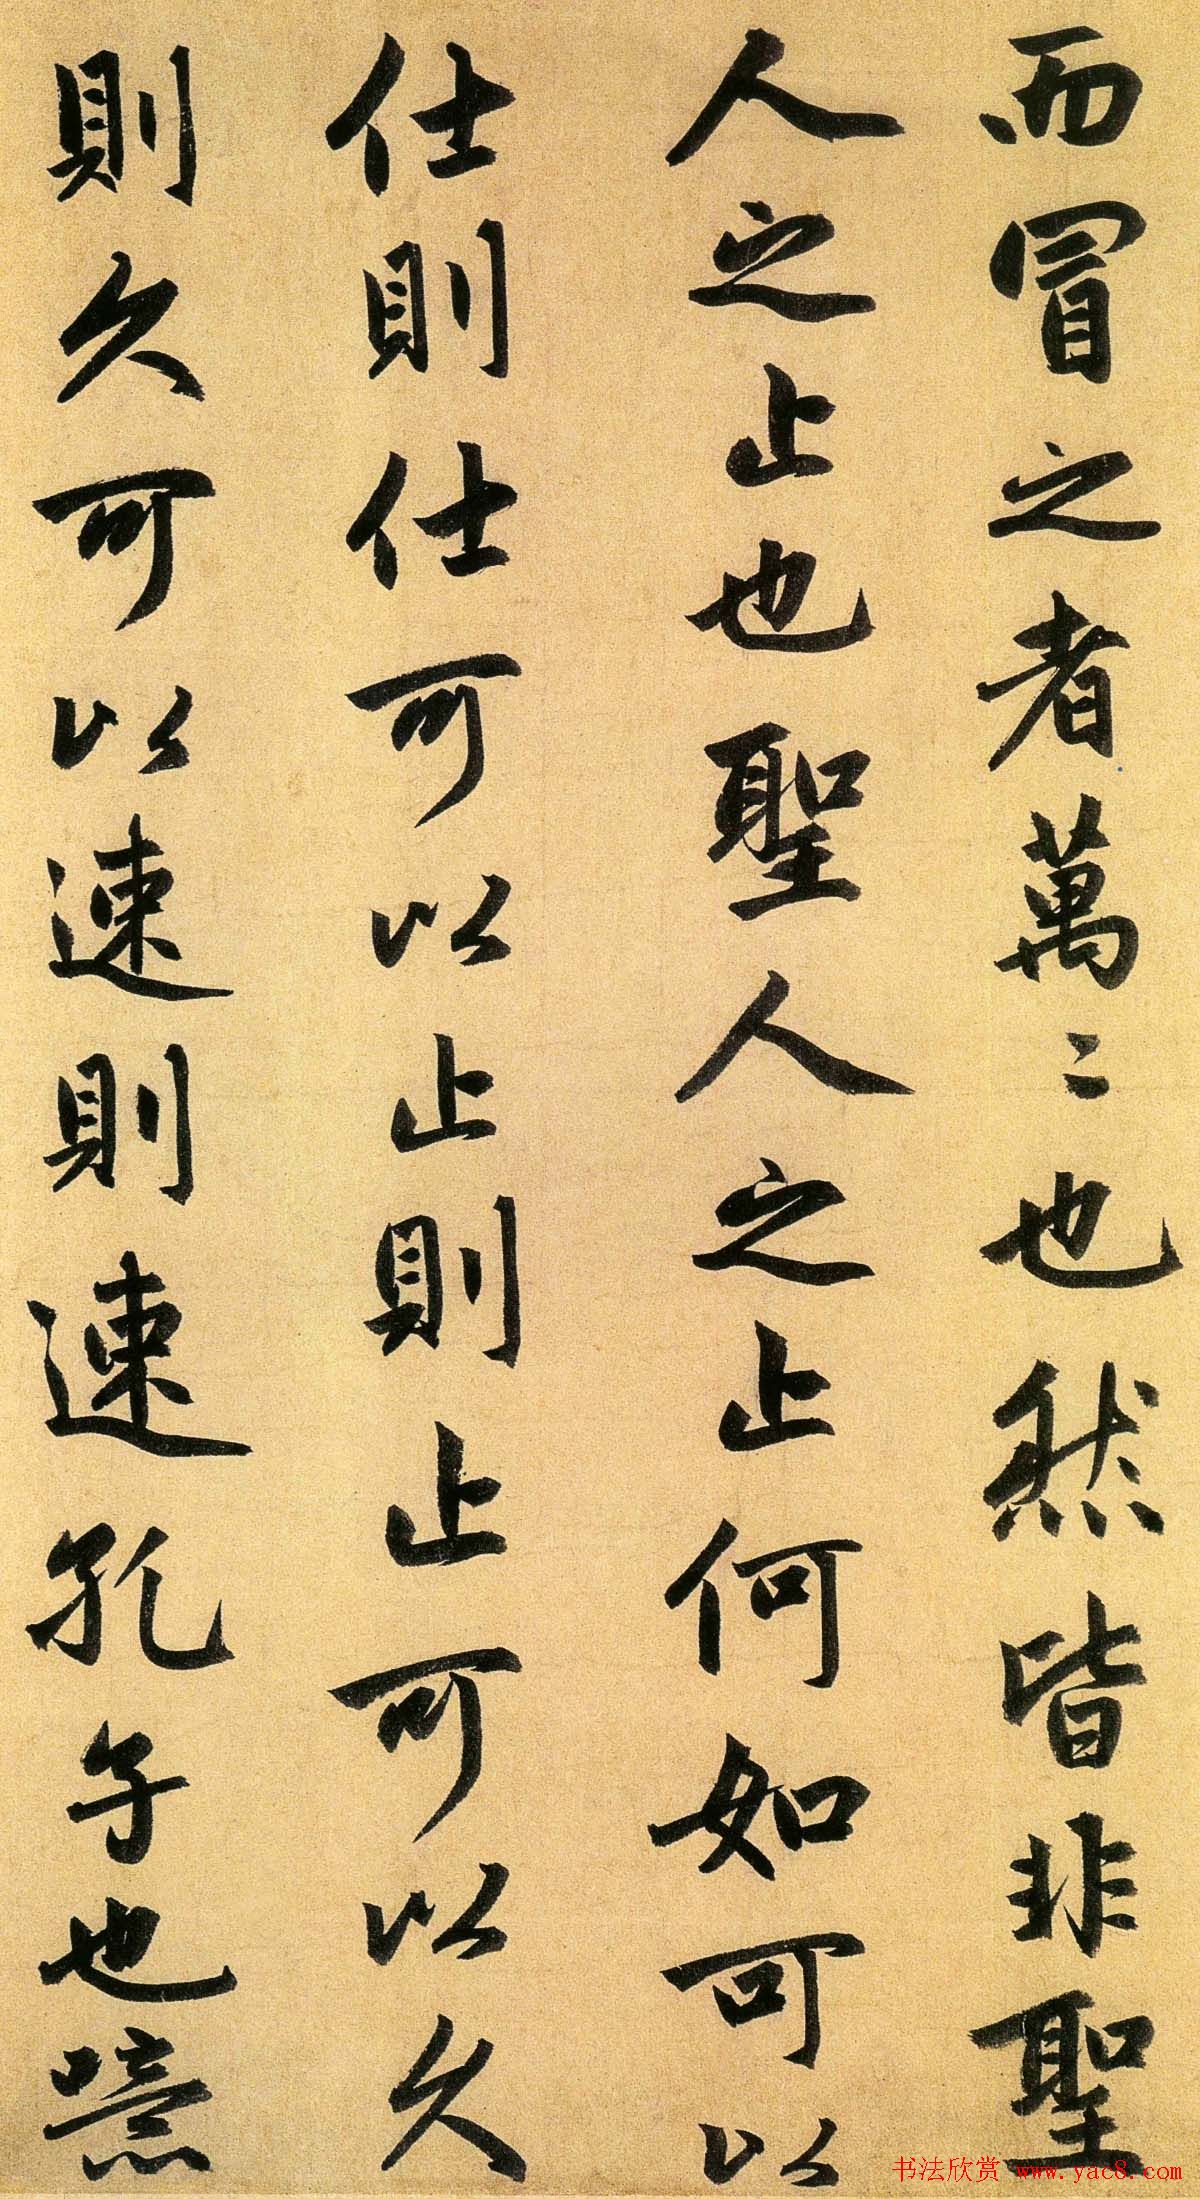 而冒之者萬〻也然皆非聖
人之止也聖人之止何如可以
仕則仕可以止則止可以久
則久可以速則速孔子也噫
书法欣赏 www.yac8.com